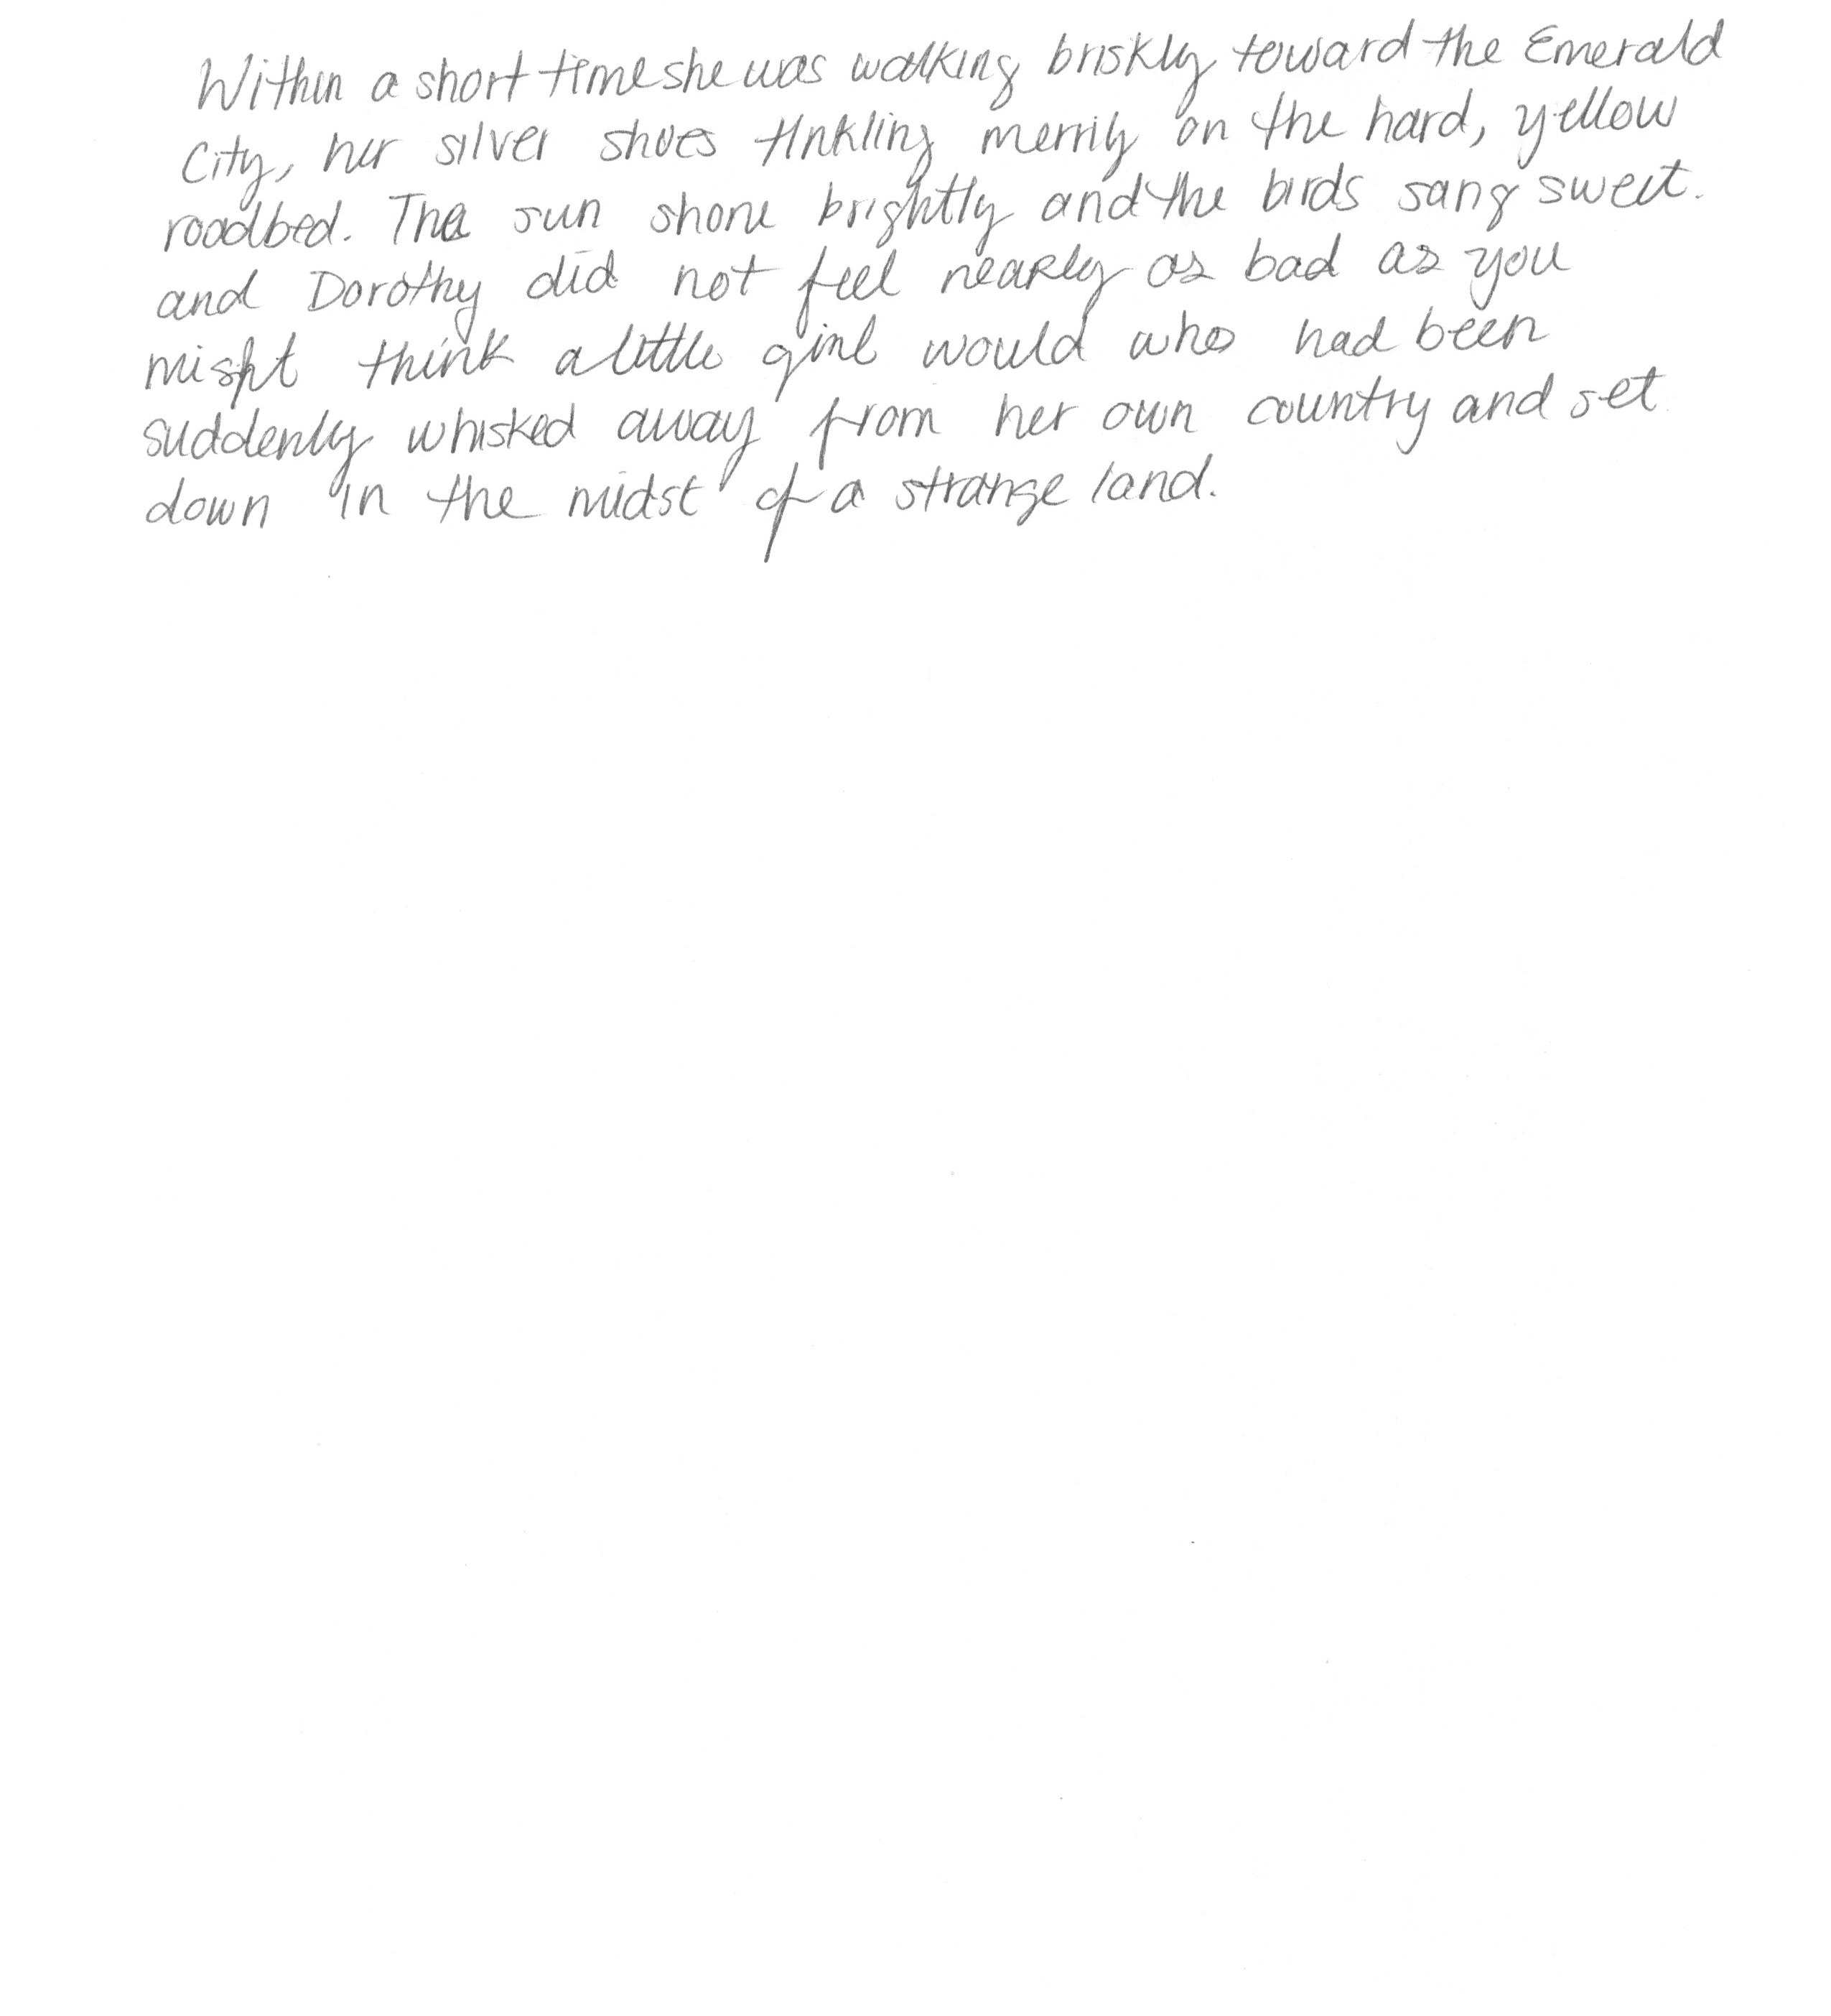 Within a short time she was walking briskly toward the Emerald
City, her silver shoes tinkling merrily on the hard, yellow
roadbed. The sun shone brightly and the birds sang sweet.
and Dorothy did not feel nearly as bad as you
might think a little girl would who had been
suddenly whisked away from her own country and set
down in the midst of a strange land.